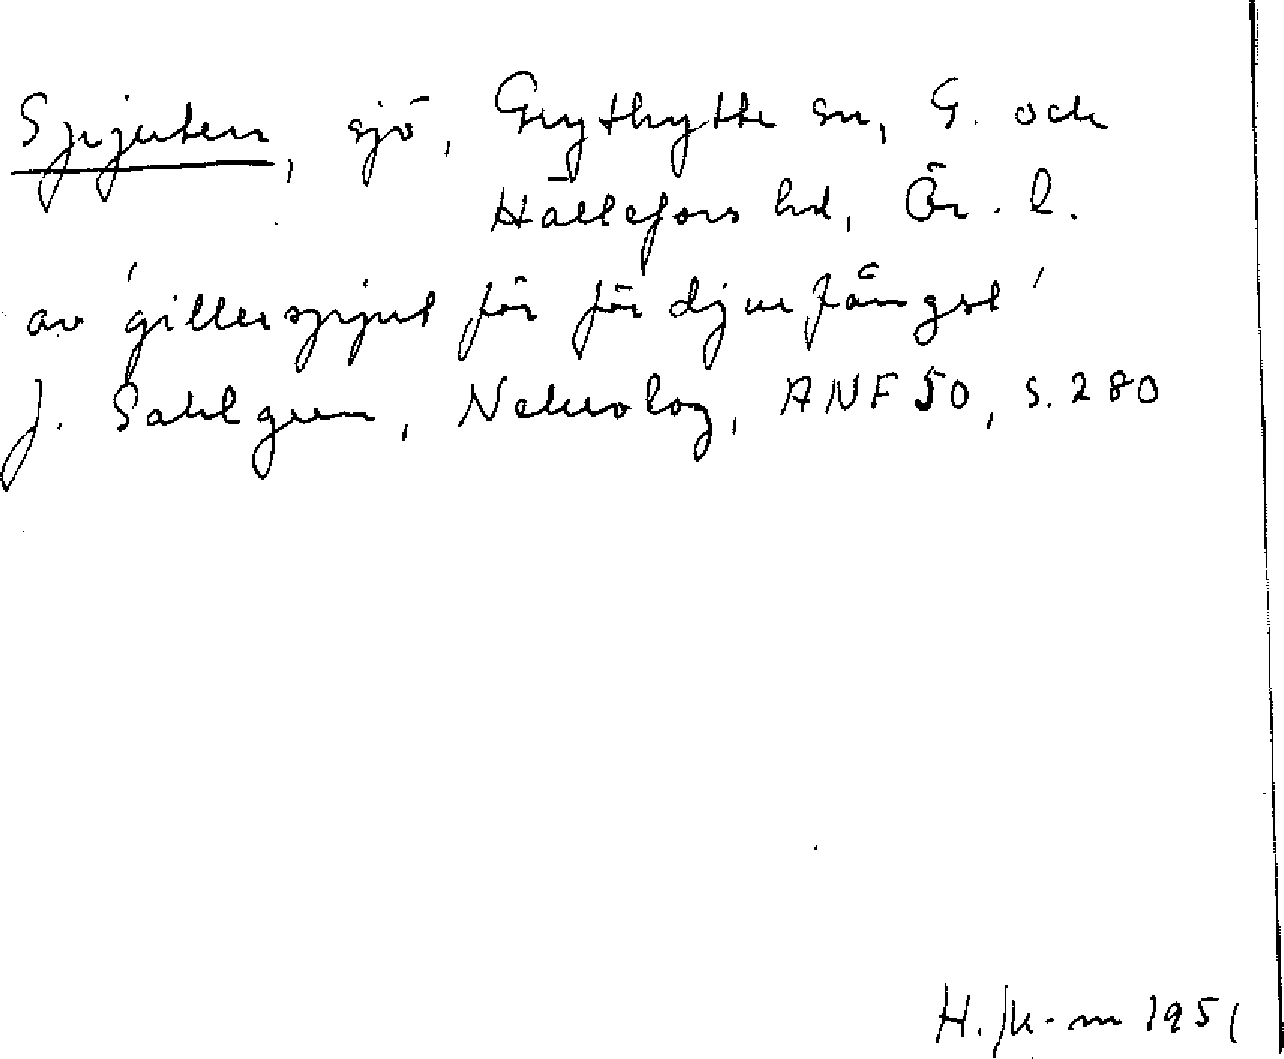 Spjuten, sjö, Grythytte sn, G. och
Hällefors hd, Ör. l.
av 'gillerspjut för för djurfångst'
J. Sahlgren, Nekrolog, ANF 50, s. 280
1951